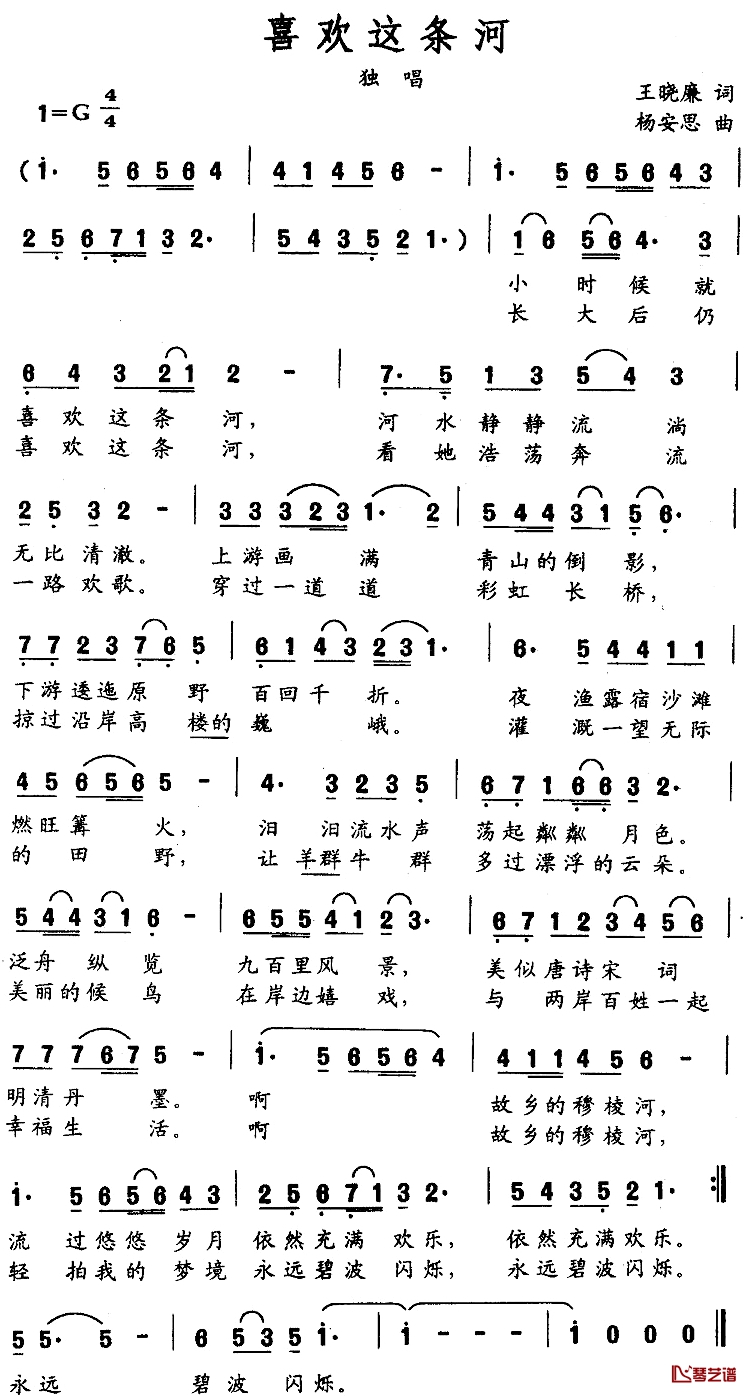 喜欢这条河
独 唱
1=G 4/4
王晓廉 词
杨安思 曲
( i· 5 6 5 6 4 | 4 1 1 4 5 6 - | i· 5 6 5 6 4 3 |
2 5 6 7 1 3 2· | 5 4 3 5 2 1· ) | 1 6 5 6 4· 3 |
小 时 候 就
长 大 后 仍
6 4 3 2 1 2 - | 7· 5 1 3 5 4 3 |
喜 欢 这 条 河, 河 水 静 静 流 淌
喜 欢 这 条 河, 看 她 浩 荡 奔 流
2 5 3 2 - | 3 3 3 2 3 1· 2 | 5 4 4 3 1 5 6· |
无 比 清 澈。 上 游 画 满 青 山 的 倒 影,
一 路 欢 歌。 穿 过 一 道 道 彩 虹 长 桥,
7 7 2 3 7 6 5 | 6 1 4 3 2 3 1· | 6· 5 4 4 1 1 |
下 游 逶 迤 原 野 百 回 千 折。 夜 渔 露 宿 沙 滩
掠 过 沿 岸 高 楼 的 巍 峨。 灌 溉 一 望 无 际
4 5 6 5 6 5 - | 4· 3 2 3 5 | 6 7 1 6 6 3 2· |
燃 旺 篝 火, 汩 汩 流 水 声 荡 起 粼 粼 月 色。
的 田 野, 让 羊 群 牛 群 多 过 漂 浮 的 云 朵。
5 4 4 3 1 6 - | 6 5 5 4 1 2 3· | 6 7 1 2 3 4 5 6 |
泛 舟 纵 览 九 百 里 风 景, 美 似 唐 诗 宋 词
美 丽 的 候 鸟 在 岸 边 嬉 戏, 与 两 岸 百 姓 一 起
7 7 7 6 7 5 - | i· 5 6 5 6 4 | 4 1 1 4 5 6 - |
明 清 丹 墨。 啊 故 乡 的 穆 棱 河,
幸 福 生 活。 啊 故 乡 的 穆 棱 河,
i· 5 6 5 6 4 3 | 2 5 6 7 1 3 2· | 5 4 3 5 2 1· :‖
流 过 悠 悠 岁 月 依 然 充 满 欢 乐, 依 然 充 满 欢 乐。
轻 拍 我 的 梦 境 永 远 碧 波 闪 烁, 永 远 碧 波 闪 烁。
5 5· 5 - | 6 5 3 5 i· | i - - - | i 0 0 0 ‖
永 远 碧 波 闪 烁。
琴艺谱